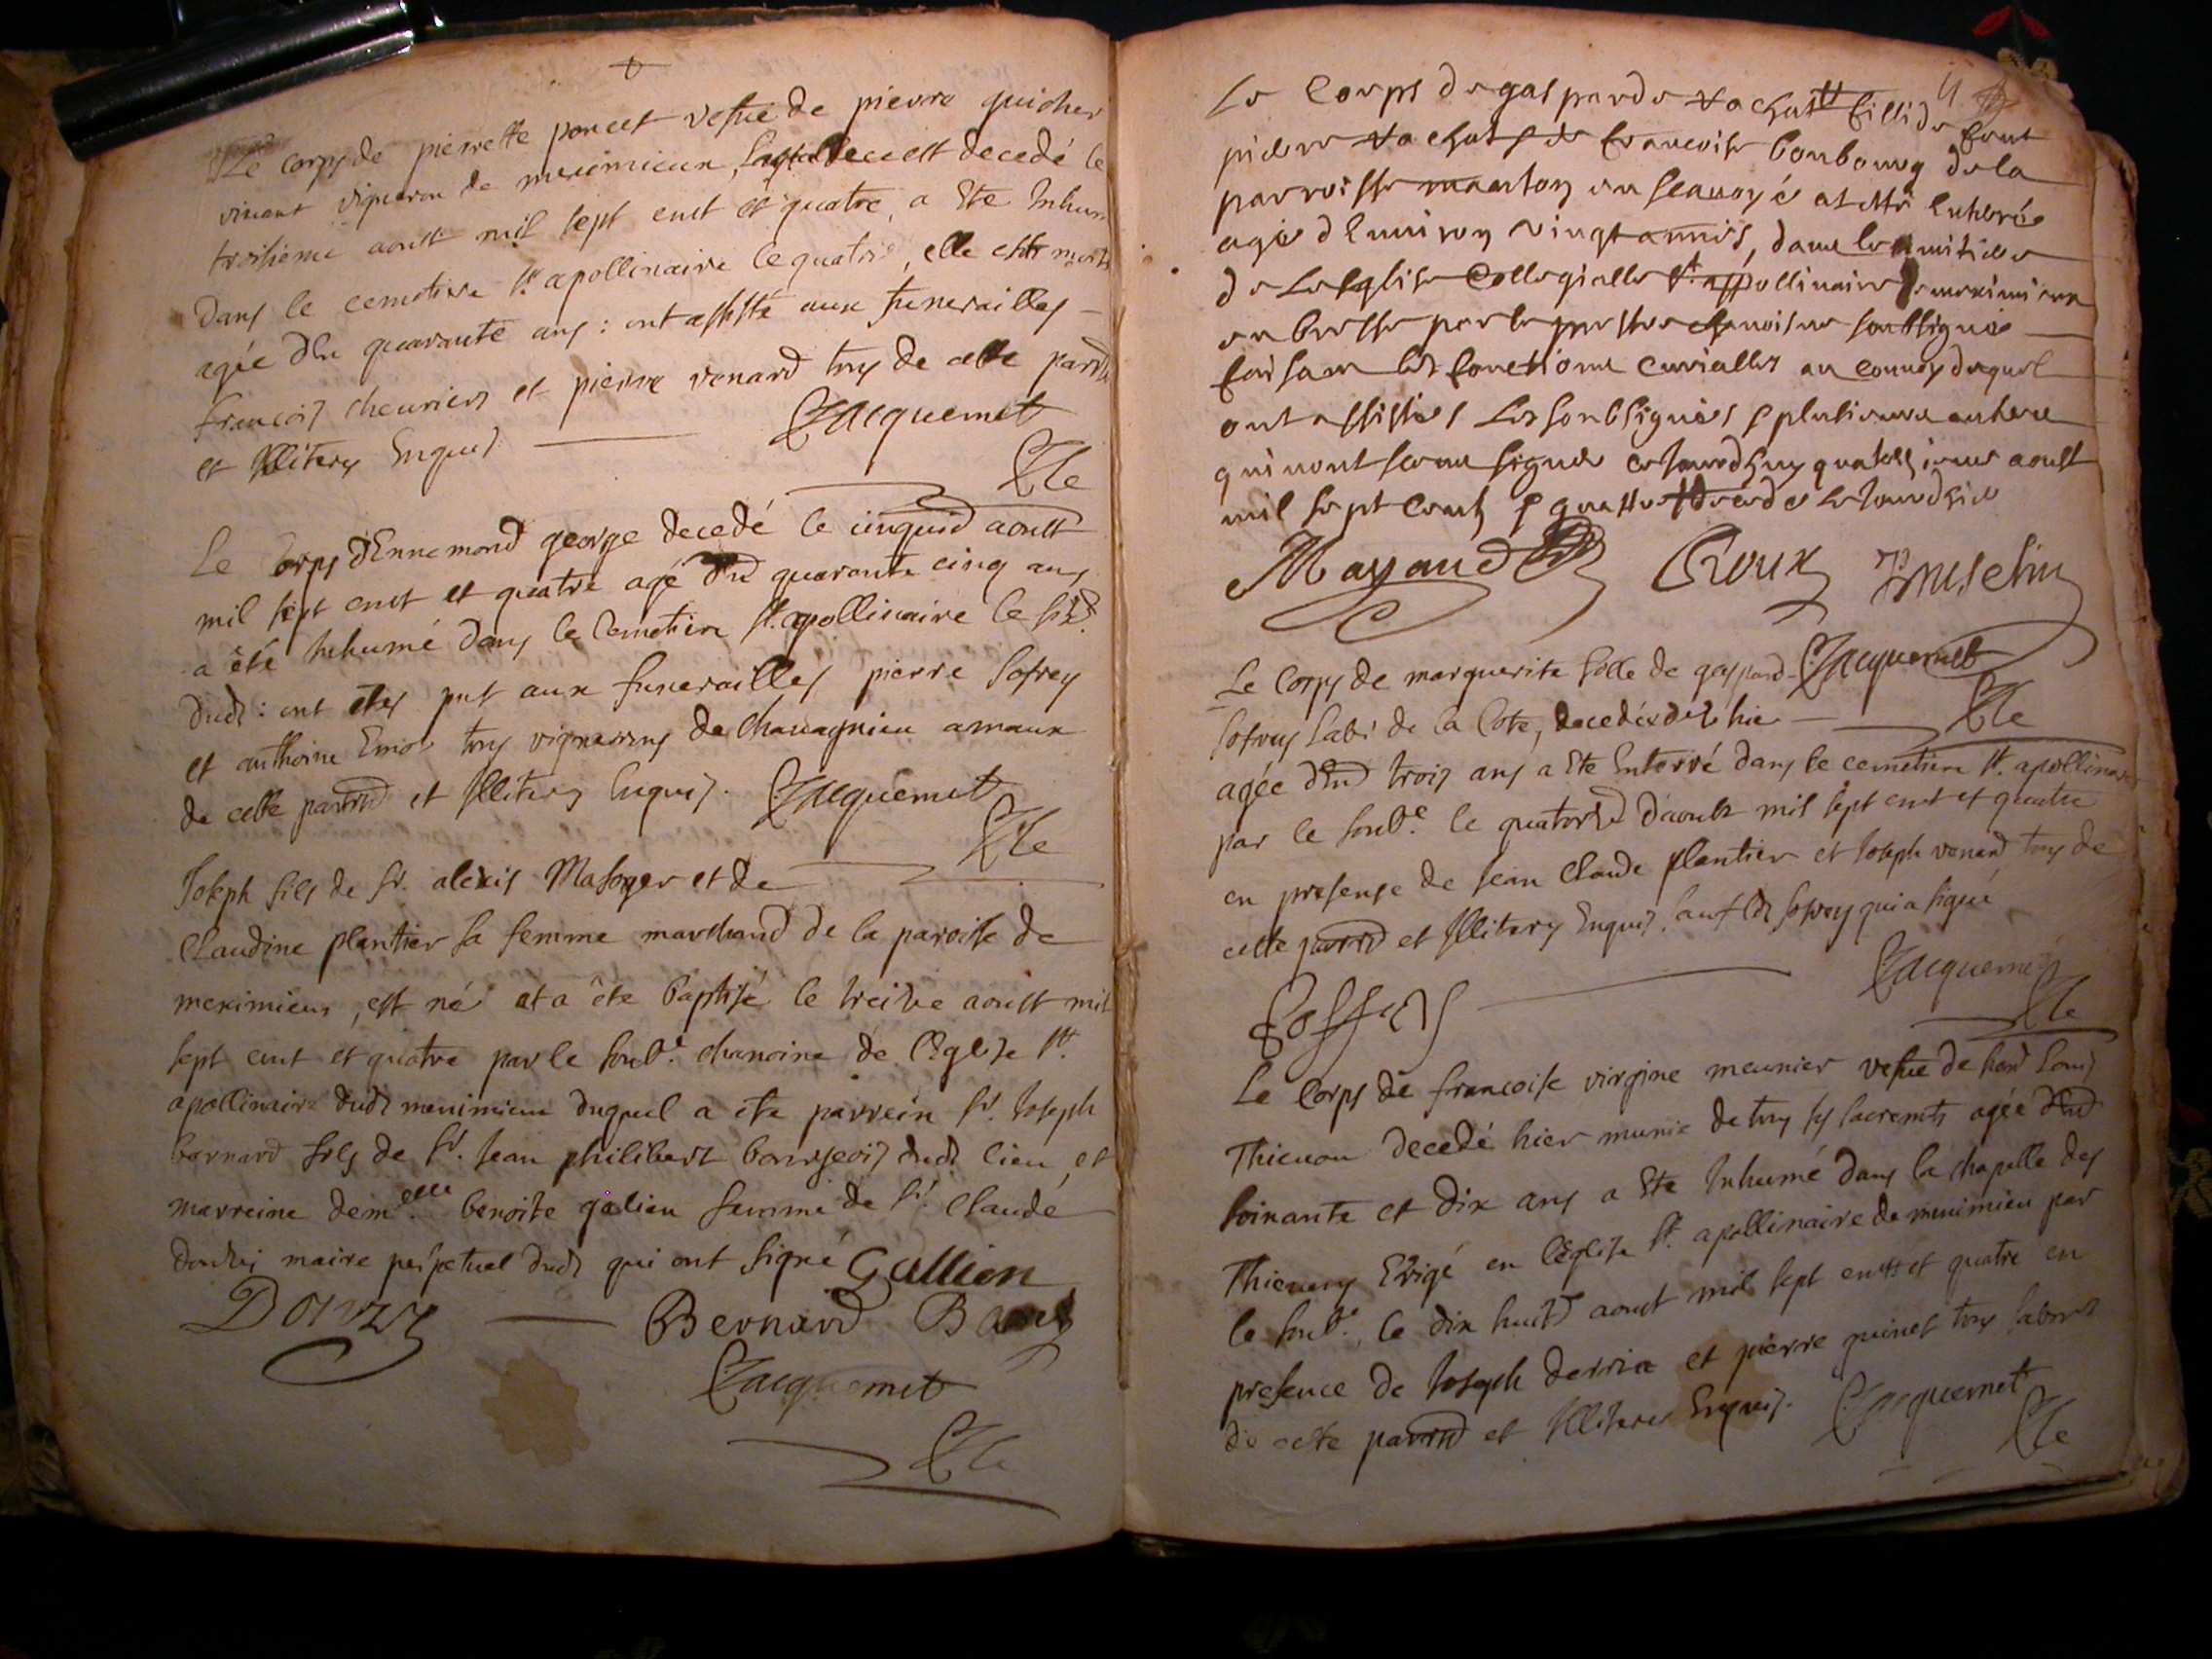 Le corps de pierrette poncet vesue de pierre guicher
viuant vigneron de meximieux, laquelle est decedé le
troisieme aoust mil sept cent et quatre, a ete Inhum
dans le cemetiere st. apollinaire le quatre, elle est morte
agée dEn quarante ans : ont assisté aux funerailles
francois cheuriers et pierre venard tous de cette parr
et Illiteres Enquis
Jacquemet
Le Corps dEnnemond george decedé le cinqui aoust
mil sept cent et quatre agé dEn quarante cinq ans
a été Inhumé dans le Cemetiere st. apollinaire le
dud: ont etes pnt aux funerailles pierre Sofrey
et anthoine tous vignerons de chauagnieu amaux
de cette parr et Illiteres Enquis. Jacquemet
Joseph fils de Sr. alexis Masoyer et de
Claudine plantier sa femme marchand de la paroisse de
meximieux, est né et a été baptisé le treize aoust mil
sept cent et quatre par le soubé. chanoine de l'Eglise st.
apollinaire dudt meximieux duquel a ete parrein Sr. Joseph
bernard fils de Sr. Jean philibert bourgeois dudt lieu, et
marreine demelle. benoite galien femme de Sr. Claude
maire perpetuel dudt qui ont signé Gallien
Donzy Bernard
Jacquemet
Le Corps de gasparde Vachat fillie de
pierre Vachat & de francoise bonbourg de la
parroisse en Seauoye at esté Enterée
agée dEnuiron vingt annes, dans le semitiere
de Leglise Collegialle st. appollinaire de meximieux
en bresse par le prestre chanoine soubsigné
faisan les fonctions curialles au conuoy duquel
ont assistés Les soubsignés & plusieurs autres
qui nont seceu signer ce Jourdhuy quatorzieme aoust
mil sept cents & quattre
Mayand Croux
Le Corps de marguerite fille de gaspard Jacquemet
Sofrey de la Cote, decedée hier
agée dEn trois ans a ete Enterré dans le cemetiere st. apollinaire
par le soubé. le quatorze d'aoust mil sept cent et quatre
en presense de Jean Claude plantier et Joseph venard tous de
cette parr et Illiteres Enquis. sauf ledt Sofrey qui a signé
Soffrey Jacquemet
Le Corps de francoise virgine meunier vesue de
Thieuon decedé hier munie de tous ses sacremts agée dEn
soixante et dix ans a ete Inhumé dans la chapelle des
Thieuons Erigé en l'Eglise st. apollinaire de meximieu par
le soubé. le dix huit aoust mil sept cents et quatre en
presence de Joseph derrix et pierre guinet tous
de cette parr et Illiteres Enquis. Jacquemet